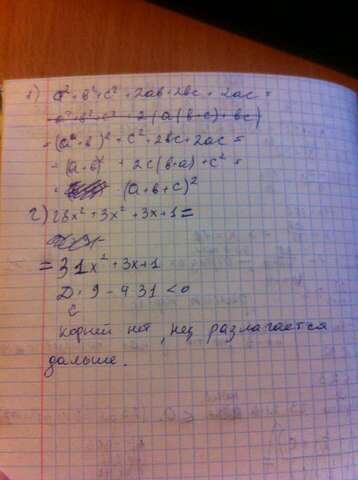 1) a² + b² + c² + 2ab + 2bc + 2ac =
a² + b² + c² + 2(a(b+c) + bc)
= (a + b)² + c² + 2bc + 2ac =
= (a + b)² + 2c(b + a) + c² =
= (a + b + c)²
2) 28x² + 3x² + 3x + 1 =
= 31x² + 3x + 1
D = 9 - 4·31 < 0
корней нет, разлагается
дальше.